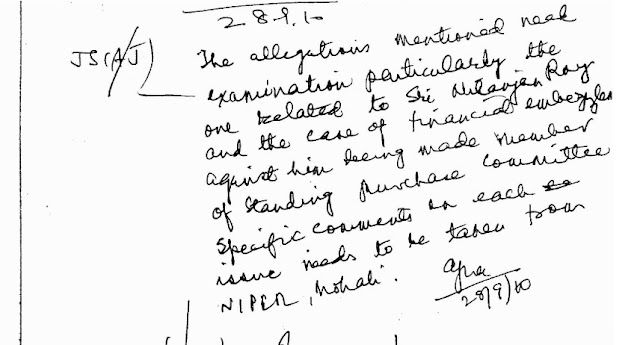 28.9.10
JS(AJ)
The allegations mentioned need
examination particularly the
one related to Shri Nilanjan Roy
and the case of financial embezzlem
against him being made member
of Standing Purchase Committee
Specific comments on each
issue needs to be taken from
NIPER, Mohali.
28/9/10